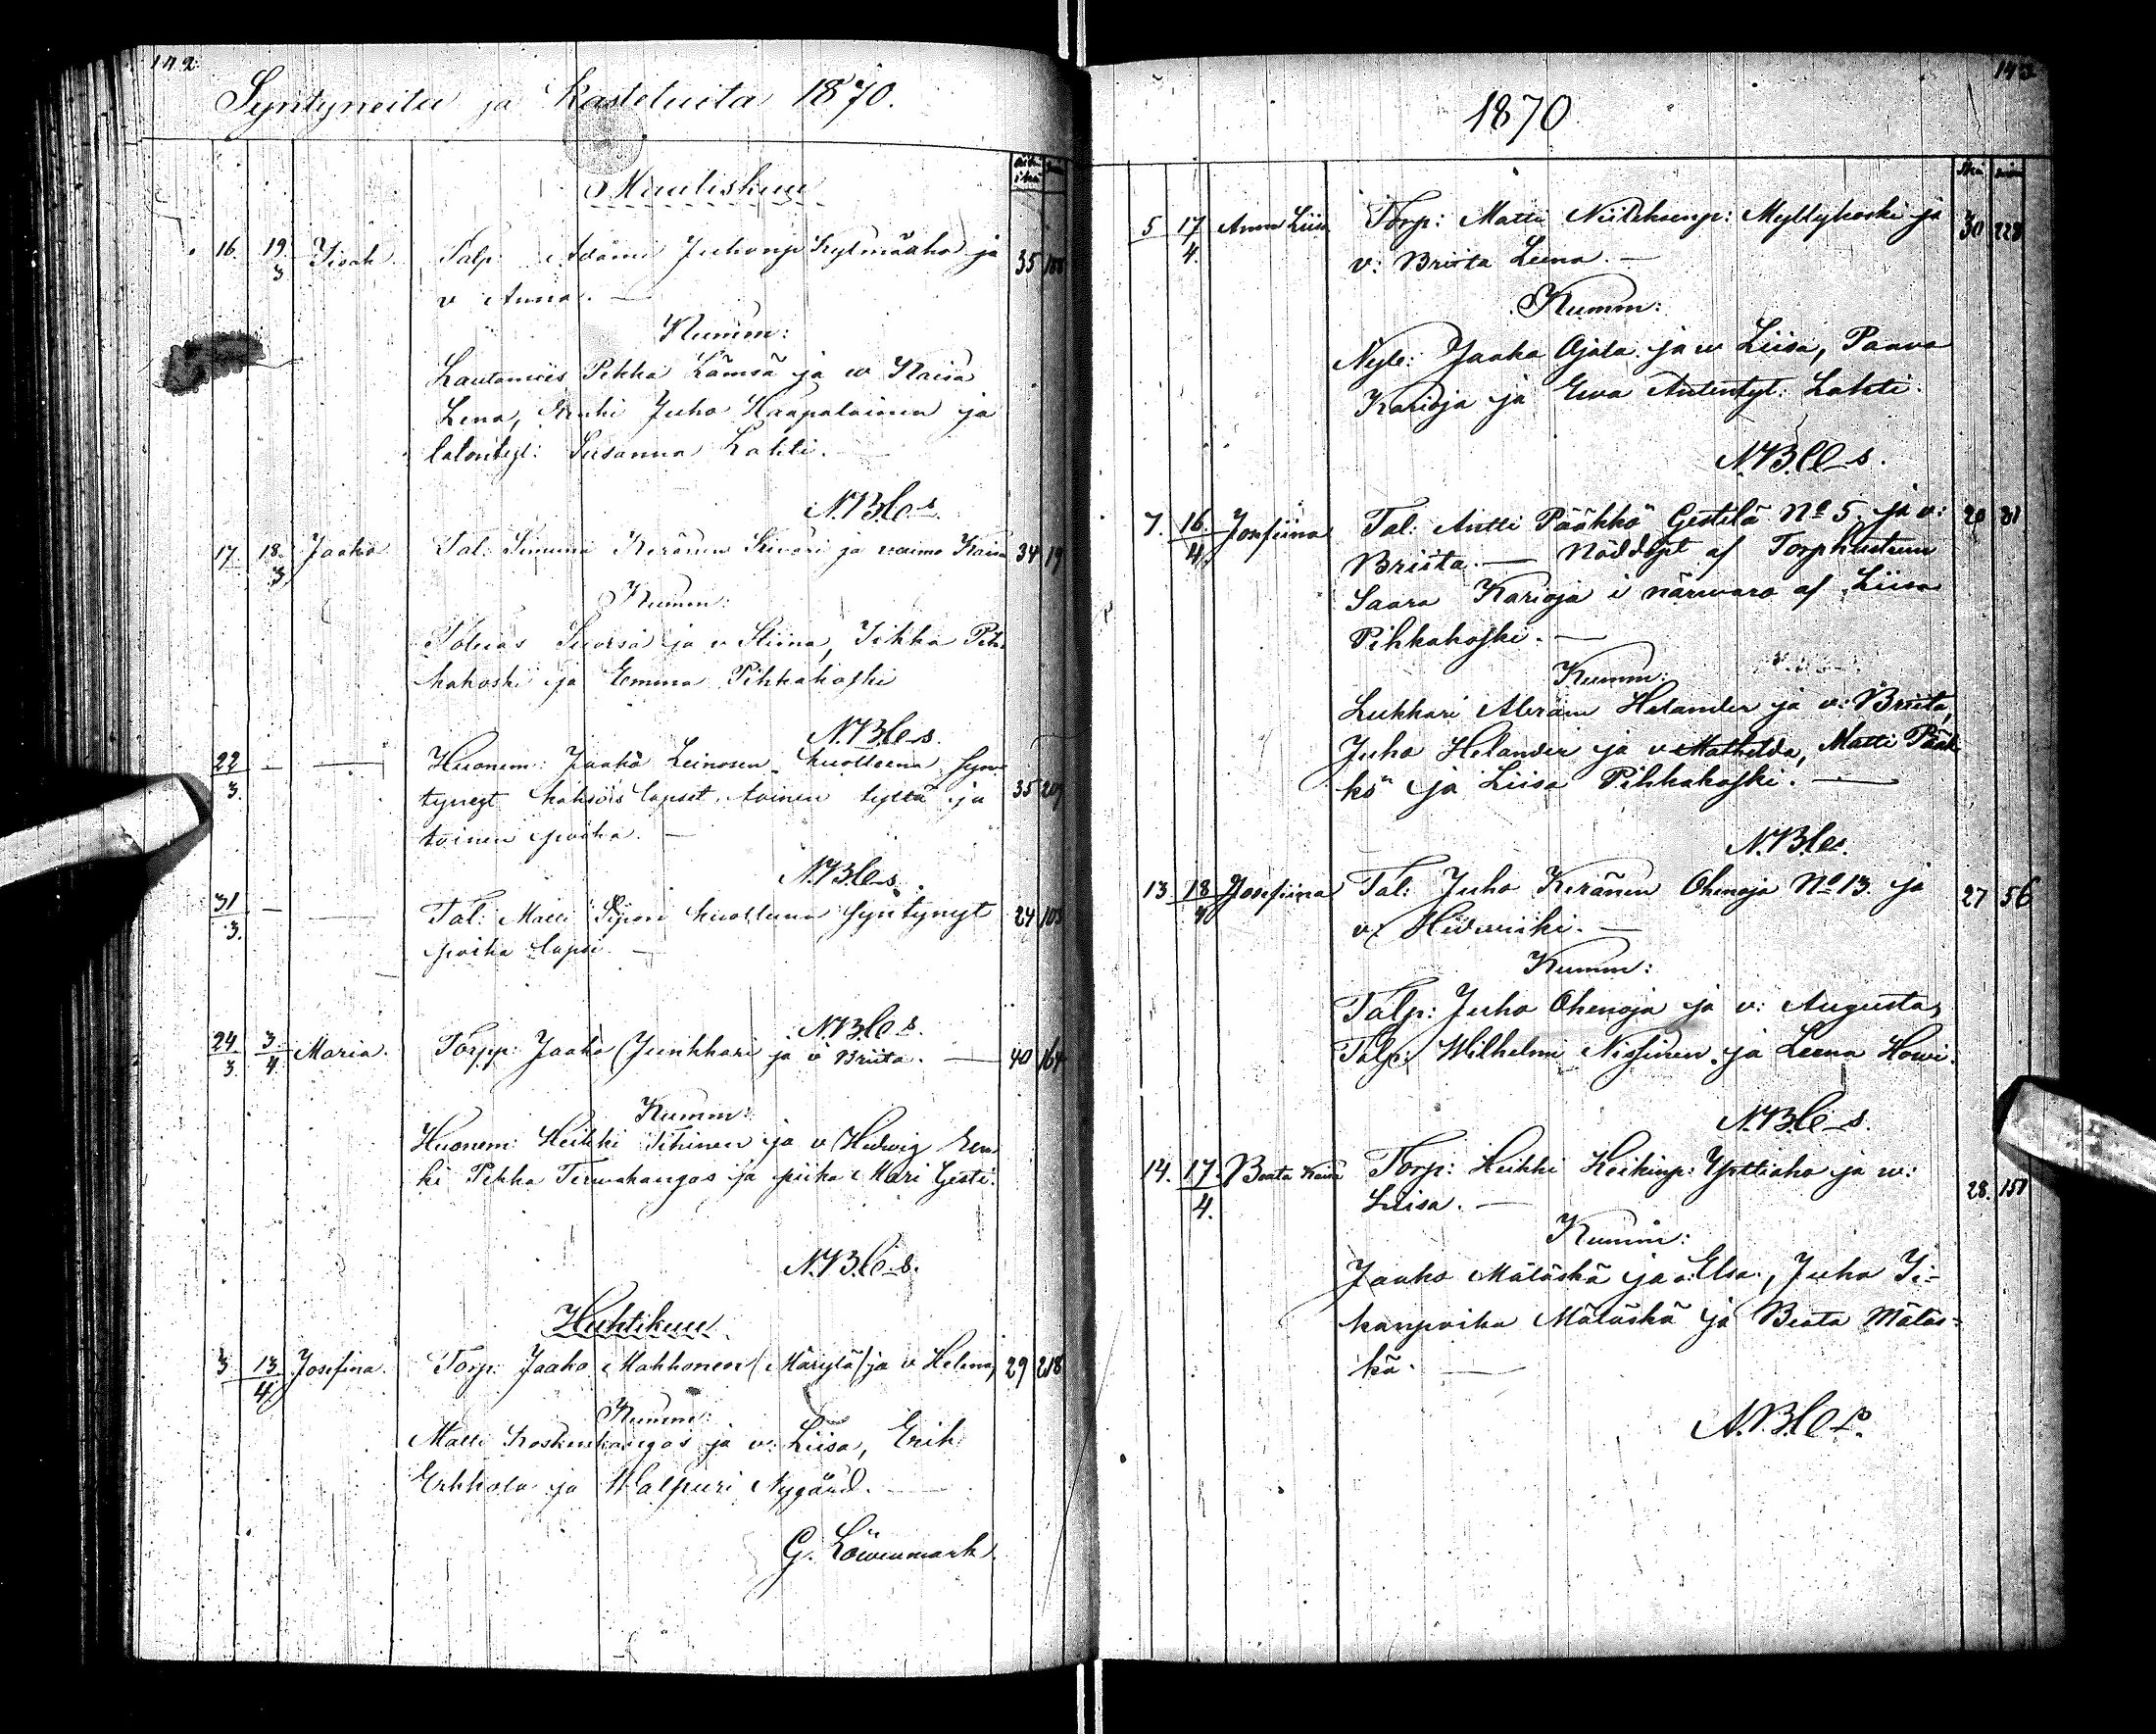 142.
Syntyneitä ja Kastetuita 1870.
Maaliskuu
16. 19/3 Isak Talp. Adami Juhonp Kylmäaho ja 35 188
v Anna. —
Kumm:
Lautamies Pekka Lämsä ja w Kaisa
Lena, Renki Juho Haapalainen ja
talontyt: Susanna Lahti. —
N.B.le s.
17. 18/3 Jaako Tal. Simuna Keränen Kivari ja vaimo Kaisa 34 19
Kumm:
Tobias Suorsa ja v Stiina, Iikka Pih-
kakoski ja Emma Pihkakoski
N.B.le s.
22/3. — — Huonem: Jaako Leinosen kuolleena syn-
tynyt kaksois lapset, toinen tyttö ja 35 207
toinen poika. —
N.B.le s.
31/3. — — Tal: Matti Sipon kuolluna syntynyt 24 103
poika lapsi —
N.B.le s.
24/3. 3/4. Maria. Torpp: Jaako Junkkari ja v Briita. — 40 164
Kumm:
Huonem: Heikki Tihinen ja v Hedwig Ren-
ki Pekka Terwakangas ja piika Mari Gesti.
N.B.le s.
Huhtikuu
3 13/4. Josefina. Torp: Jaako Mahkonen (Märylä) ja v Helena, 29 218
Kumm:
Matti Koskenkangas ja w: Liisa, Erik
Erkkola ja Walpuri Nygård. —
G. Löwenmark
143
1870
5 17/4. Anna Liisa Torp: Matti Niileksenp: Myllykoski ja 30 228
v: Briita Leena. —
Kumm:
Nyb: Jaako Ojala ja w Liisa, Paavo
Karioja ja Ewa Antintyt: Lahti.
N.B.le s.
7. 16/4. Josefiina Tal: Antti Pääkkö Gestilä No 5. ja v: 20 31
Briita. — Nöddöpt af Torphustrun
Saara Karioja i närwaro af Liisa
Pihkakoski. —
Kumm:
Lukkari Abram Helander ja v: Briita,
Juho Helander ja v Mathilda, Matti Pääk-
kö ja Liisa Pihkakoski. —
N.B.le s.
13. 18/4 Josefiina Tal: Juho Keränen Ohenoja No 13. ja 27 56
v: Hedwiiki. —
Kumm:
Talp: Juho Ohenoja ja v: Augusta,
Talp: Wilhelmi Nissinen ja Leena Howi.
N.B.le s.
14. 17/4. Beata Kaisa Torp: Heikki Heikinp: Ypttiaho ja w: 28. 151
Luisa. —
Kumm:
Jaako Mätäskä ja v: Elsa, Juho Ii-
kanpoika Mätäskä ja Beata Mätäs-
kä. —
N.B.le s.